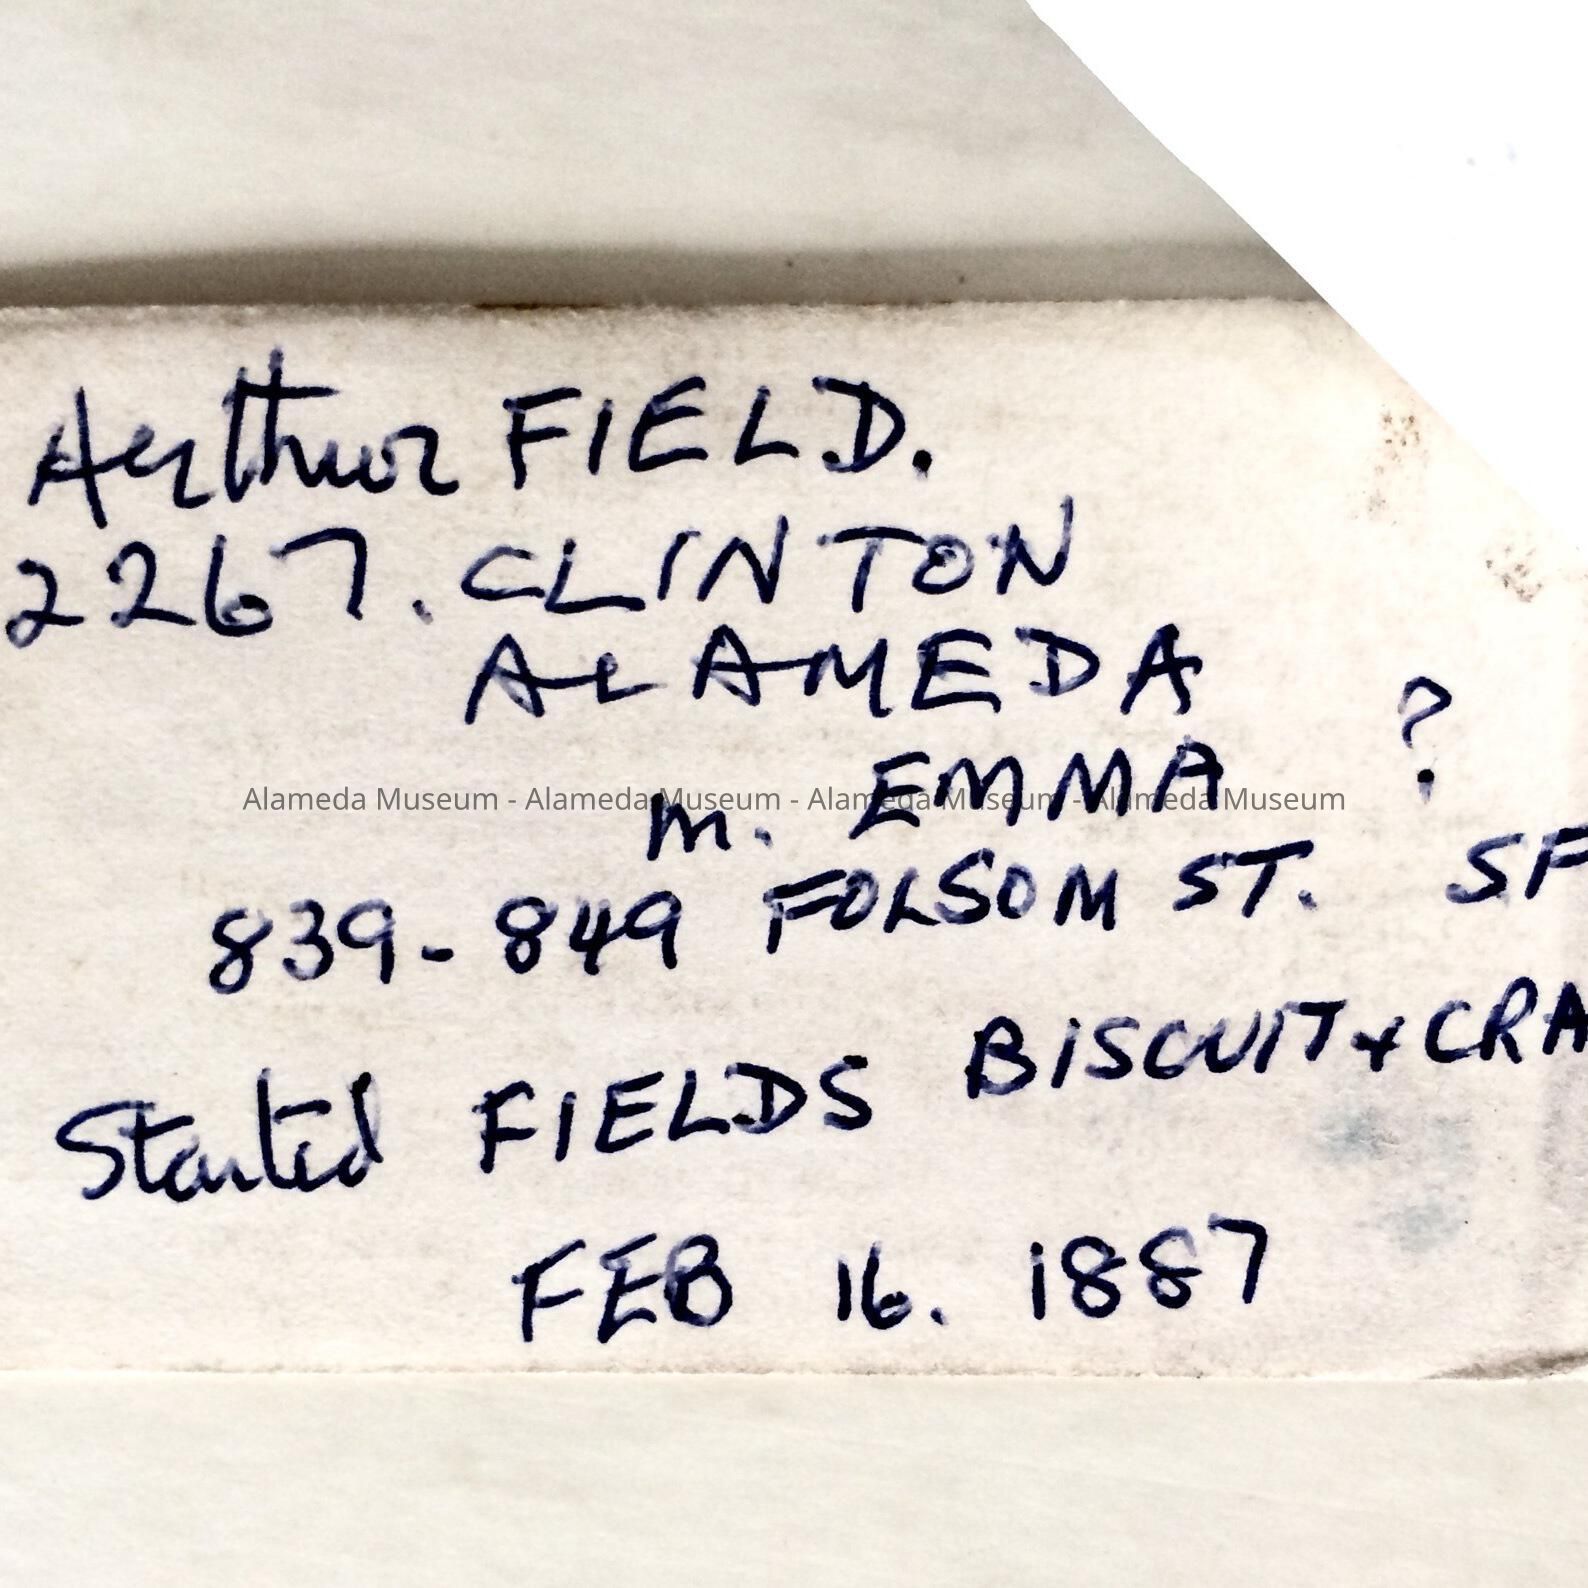 Arthur FIELD.
2267. CLINTON
ALAMEDA
m. EMMA ?
Alameda Museum - Alameda Museum - Alameda Museum - Alameda Museum
839-849 FOLSOM ST. SF
Started FIELDS BISCUIT & CRA
FEB 16. 1887